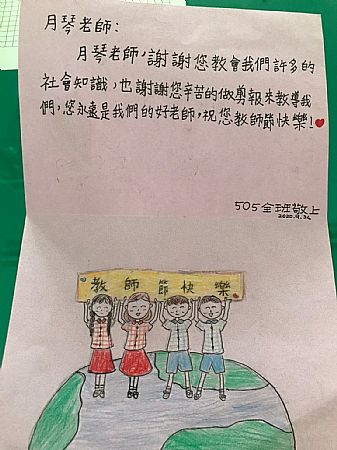 月琴老師：
月琴老師，謝謝您教會我們許多的
社會知識，也謝謝您辛苦的做剪報來教導我
們，您永遠是我們的好老師，祝您教師節快樂！
505全班敬上
2020.9.26
教師節快樂